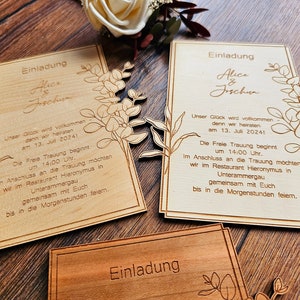 Einladung
Alice
&
Joschua
Unser Glück wird vollkommen,
denn wir heiraten
am 13. Juli 2024!
Die Freie Trauung beginnt
um 14.00 Uhr.
Im Anschluss an die Trauung möchten
wir im Restaurant Hieronymus in
Unterammergau
gemeinsam mit Euch
bis in die Morgenstunden feiern.
Einladung
Alice
&
Joschua
Unser Glück wird vollkommen,
denn wir heiraten
am 13. Juli 2024!
Die Freie Trauung beginnt
um 14.00 Uhr.
Im Anschluss an die Trauung möchten
wir im Restaurant Hieronymus in
Unterammergau
gemeinsam mit Euch
bis in die Morgenstunden feiern.
Einladung